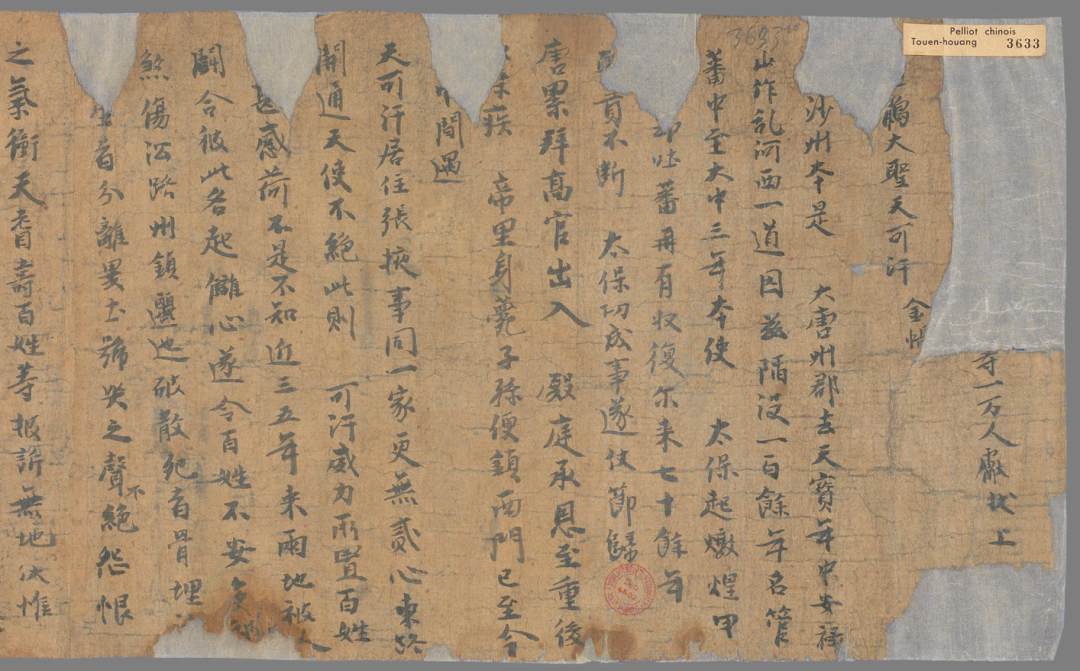 等一万人獻状上
鶻大聖天可汗金
沙州本是大唐州郡去天寳年中安禄
山作乱河西一道因兹陷没一百餘年名管
蕃中至大中三年本使太保起燉煌甲
却吐蕃再有收復尔来七十餘年
貢不断太保功成事遂仗節歸
唐累拜高官出入殿庭承恩至重後
疾帝里身薨子孫便鎮西門已至今
中間遇
天可汗居住張掖事同一家更無貳心東路
開通天使不絶此則可汗威力所置百姓
甚感荷不是不知近三五年来兩地被人
闘合彼此各起讎心遂令百姓不安
煞傷沿路州鎮邐迆破散死者骨埋
生者分離異土號哭之聲不絶怨恨
之氣衝天耆壽百姓等披訴無地伏惟
Pelliot chinois
Touen-houang 3633